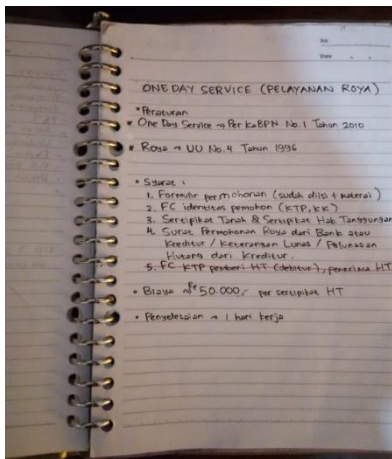 No
Date
ONE DAY SERVICE (PELAYANAN ROYA)
• Peraturan
* One Day Service → Per KaBPN No. 1 Tahun 2010
* Roya → UU No. 4 Tahun 1996
• Syarat :
1. Formulir permohonan (sudah diisi + materai)
2. FC identitas pemohon (KTP, KK)
3. Sertipikat Tanah & Sertipikat Hak Tanggungan
4. Surat Permohonan Roya dari Bank atau
Kreditur / Keterangan Lunas / Pelunasan
Hutang dari Kreditur.
5. FC KTP pemberi HT (debitur), penerima HT
• Biaya → Rp 50.000,- per sertipikat HT
• Penyelesaian → 1 hari kerja